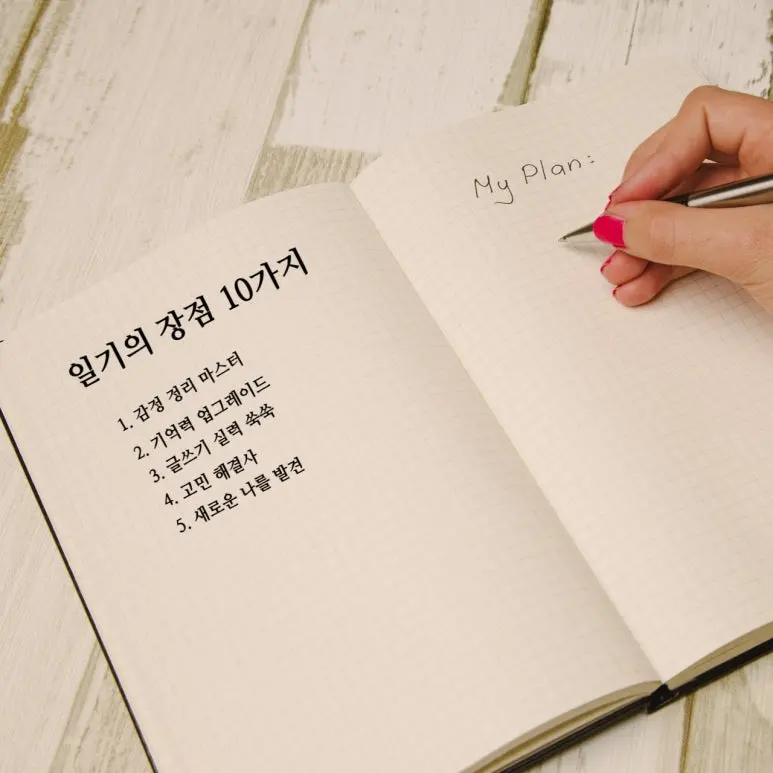 일기의 장점 10가지
1. 감정 정리 마스터
2. 기억력 업그레이드
3. 글쓰기 실력 쑥쑥
4. 고민 해결사
5. 새로운 나를 발견
My Plan: